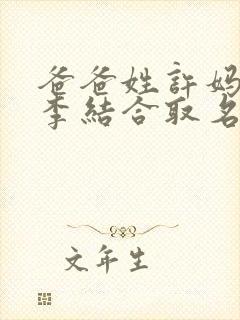 爸爸姓許妈
李結合取名
文年生